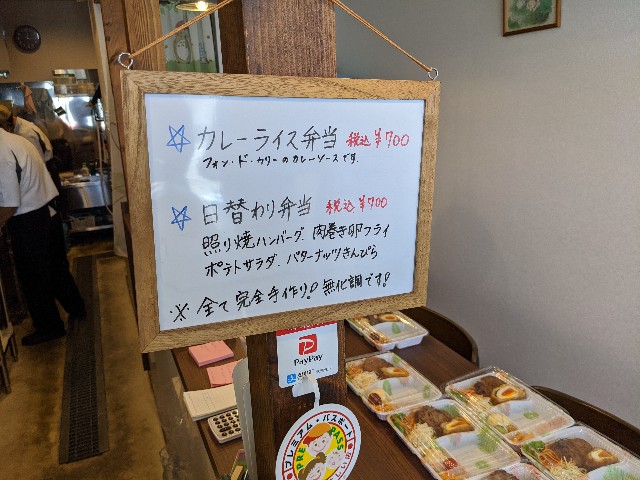 ☆ カレーライス弁当 税込¥700
フォン・ド・カリーのカレーソースです.
☆ 日替わり弁当 税込¥700
照り焼ハンバーグ. 肉巻き卵フライ
ポテトサラダ. バターナッツきんぴら
※ 全て完全手作り!無化調です!
PayPay
プレミアム・パスポート
PRE PASS